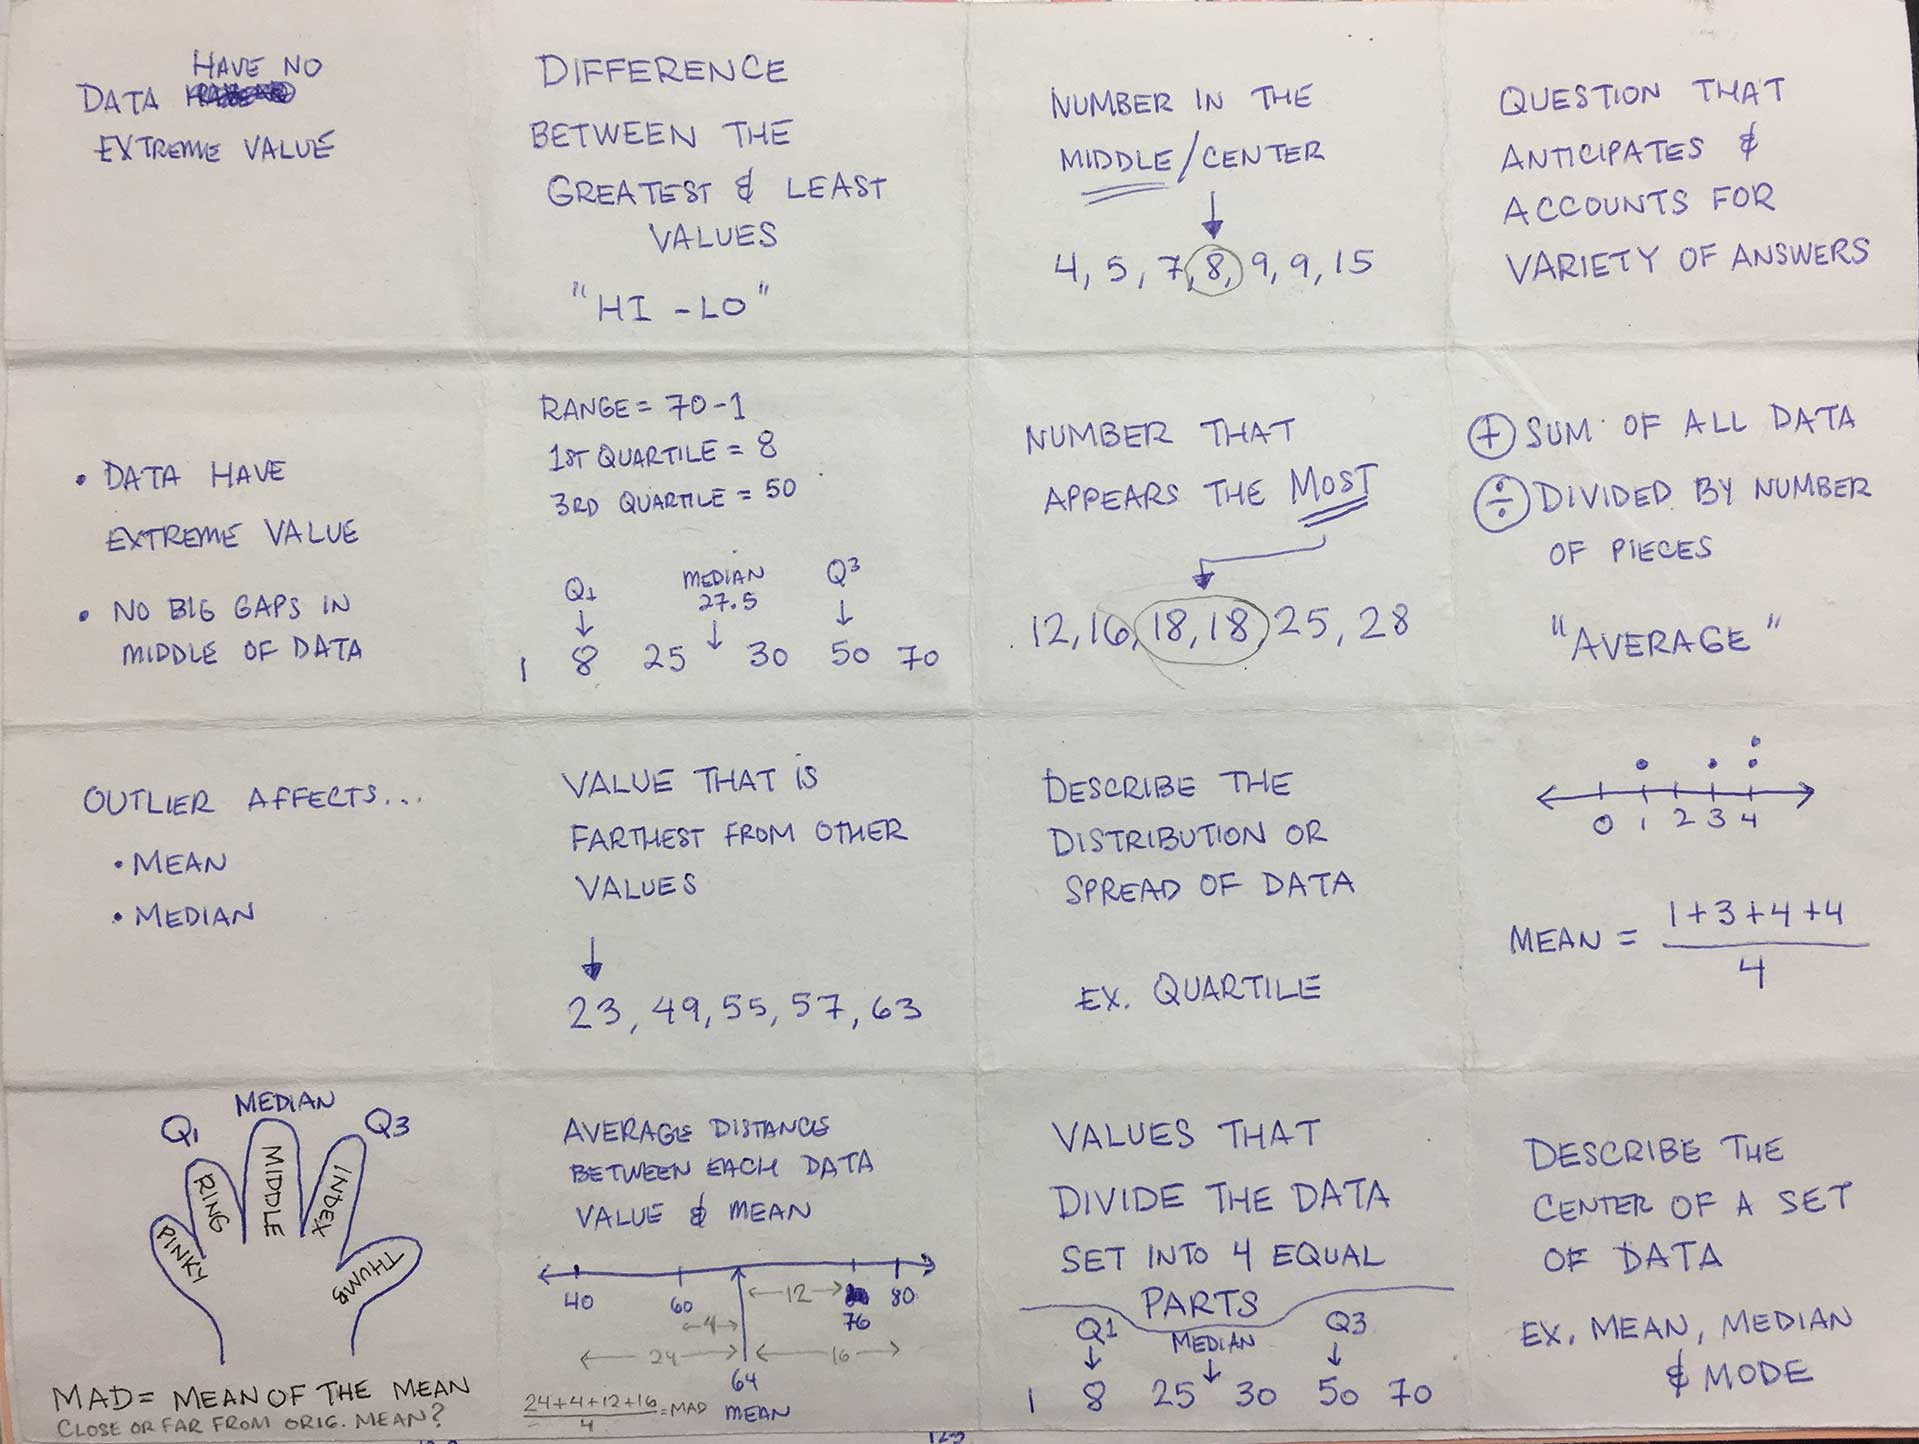 HAVE NO
DATA
EXTREME VALUE
DIFFERENCE
BETWEEN THE
GREATEST & LEAST
VALUES
"HI - LO"
NUMBER IN THE
MIDDLE/CENTER
4, 5, 7, 8, 9, 9, 15
QUESTION THAT
ANTICIPATES &
ACCOUNTS FOR
VARIETY OF ANSWERS
• DATA HAVE
EXTREME VALUE
• NO BIG GAPS IN
MIDDLE OF DATA
RANGE = 70-1
1ST QUARTILE = 8
3RD QUARTILE = 50
Q1 MEDIAN Q3
27.5
1 8 25 30 50 70
NUMBER THAT
APPEARS THE MOST
12, 16, 18, 18, 25, 28
+ SUM OF ALL DATA
÷ DIVIDED BY NUMBER
OF PIECES
"AVERAGE"
OUTLIER AFFECTS...
• MEAN
• MEDIAN
VALUE THAT IS
FARTHEST FROM OTHER
VALUES
23, 49, 55, 57, 63
DESCRIBE THE
DISTRIBUTION OR
SPREAD OF DATA
EX. QUARTILE
0 1 2 3 4
MEAN = 1+3+4+4
4
Q1 MEDIAN Q3
PINKY RING MIDDLE INDEX THUMB
MAD = MEAN OF THE MEAN
CLOSE OR FAR FROM ORIG. MEAN?
AVERAGE DISTANCE
BETWEEN EACH DATA
VALUE & MEAN
40 60 12 80
4 76
24 16
64
24+4+12+16 = MAD MEAN
4
VALUES THAT
DIVIDE THE DATA
SET INTO 4 EQUAL
PARTS
Q1 MEDIAN Q3
1 8 25 30 50 70
DESCRIBE THE
CENTER OF A SET
OF DATA
EX. MEAN, MEDIAN
& MODE